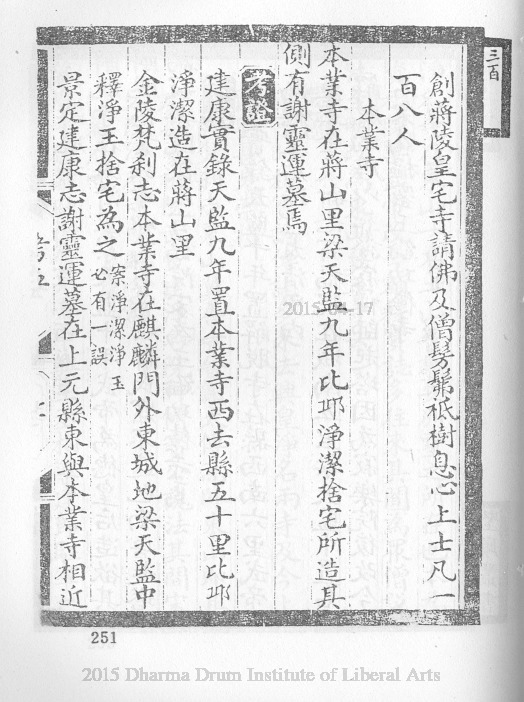 三百
創蔣陵皇宅寺請佛及僧髣髴祇樹息心上士凡一
百八人
本業寺
本業寺在蔣山里梁天監九年比邱淨潔捨宅所造其
側有謝靈運墓焉
考證
建康實錄天監九年置本業寺西去縣五十里比邱
淨潔造在蔣山里
金陵梵刹志本業寺在麒麟門外東城地梁天監中
釋淨玉捨宅為之案淨潔淨玉
必有一誤
景定建康志謝靈運墓在上元縣東與本業寺相近
2015-04-17
251
2015 Dharma Drum Institute of Liberal Arts